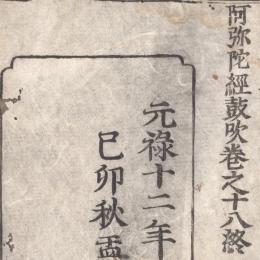 阿弥陀經鼓吹巻之十八終
元祿十二年
已卯秋盂